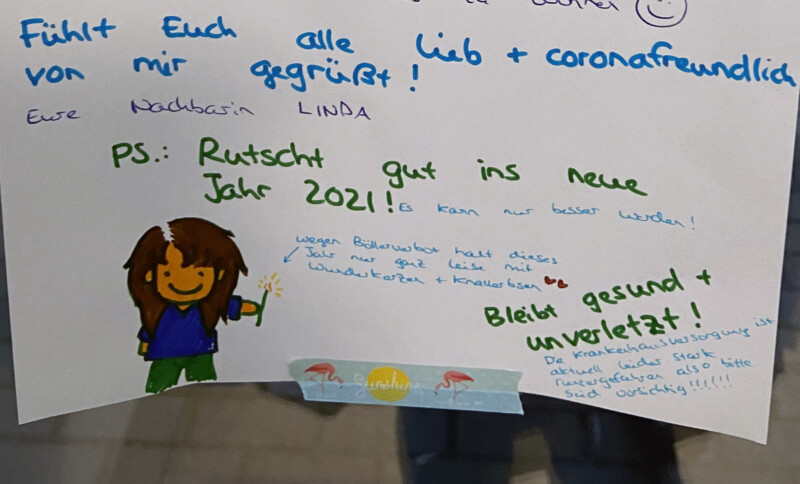 Fühlt Euch alle lieb + coronafreundlich
von mir gegrüßt!
Eure Nachbarin LINDA
PS.: Rutscht gut ins neue
Jahr 2021! Es kann nur besser werden!
wegen Böllerverbot halt dieses
Jahr nur ganz leise mit
Wunderkerzen + Knallerbsen
Bleibt gesund +
unverletzt!
Die Krankenhausversorgung ist
aktuell leider stark
runtergefahren also bitte
seid vorsichtig!!!!!!
Sunshine